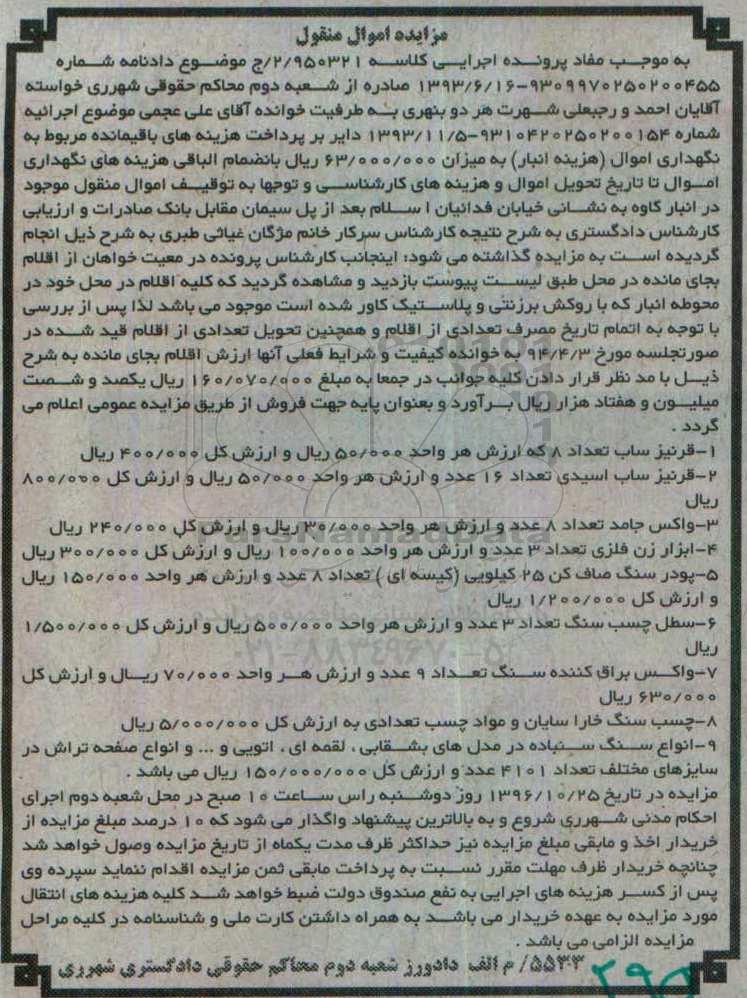 مزایده اموال منقول
به موجب مفاد پرونده اجرایی کلاسه ۲/۹۵۰۳۲۱/ج موضوع دادنامه شماره
۹۳۰۹۹۷۰۲۵۰۲۰۰۴۵۵-۱۳۹۳/۶/۱۶ صادره از شعبه دوم محاکم حقوقی شهرری خواسته
آقایان احمد و رجبعلی شهرت هر دو بنهری به طرفیت خوانده آقای علی عجمی موضوع اجرائیه
شماره ۹۳۱۰۴۲۰۲۵۰۲۰۰۱۵۴-۱۳۹۳/۱۱/۵ دایر بر پرداخت هزینه های باقیمانده مربوط به
نگهداری اموال (هزینه انبار) به میزان ۶۳/۰۰۰/۰۰۰ ریال بانضمام الباقی هزینه های نگهداری
اموال تا تاریخ تحویل اموال و هزینه های کارشناسی و توجها به توقیف اموال منقول موجود
در انبار کاوه به نشانی خیابان فدائیان اسلام بعد از پل سیمان مقابل بانک صادرات و ارزیابی
کارشناس دادگستری به شرح نتیجه کارشناس سرکار خانم مژگان غیاثی طبری به شرح ذیل انجام
گردیده است به مزایده گذاشته می شود: اینجانب کارشناس پرونده در معیت خواهان از اقلام
بجای مانده در محل طبق لیست پیوست بازدید و مشاهده گردید که کلیه اقلام در محل خود در
محوطه انبار که با روکش برزنتی و پلاستیک کاور شده است موجود می باشد لذا پس از بررسی
با توجه به اتمام تاریخ مصرف تعدادی از اقلام و همچنین تحویل تعدادی از اقلام قید شده در
صورتجلسه مورخ ۹۴/۴/۳ به خوانده کیفیت و شرایط فعلی آنها ارزش اقلام بجای مانده به شرح
ذیل با مد نظر قرار دادن کلیه جوانب در جمعا به مبلغ ۱۶۰/۰۷۰/۰۰۰ ریال یکصد و شصت
میلیون و هفتاد هزار ریال برآورد و بعنوان پایه جهت فروش از طریق مزایده عمومی اعلام می
گردد .
۱-قرنیز ساب تعداد ۸ که ارزش هر واحد ۵۰/۰۰۰ ریال و ارزش کل ۴۰۰/۰۰۰ ریال
۲-قرنیز ساب اسیدی تعداد ۱۶ عدد و ارزش هر واحد ۵۰/۰۰۰ ریال و ارزش کل ۸۰۰/۰۰۰
ریال
۳-واکس جامد تعداد ۸ عدد و ارزش هر واحد ۳۰/۰۰۰ ریال و ارزش کل ۲۴۰/۰۰۰ ریال
۴-ابزار زن فلزی تعداد ۳ عدد و ارزش هر واحد ۱۰۰/۰۰۰ ریال و ارزش کل ۳۰۰/۰۰۰ ریال
۵-پودر سنگ صاف کن ۲۵ کیلویی (کیسه ای) تعداد ۸ عدد و ارزش هر واحد ۱۵۰/۰۰۰ ریال
و ارزش کل ۱/۲۰۰/۰۰۰ ریال
۶-سطل چسب سنگ تعداد ۳ عدد و ارزش هر واحد ۵۰۰/۰۰۰ ریال و ارزش کل ۱/۵۰۰/۰۰۰
ریال
۷-واکس براق کننده سنگ تعداد ۹ عدد و ارزش هر واحد ۷۰/۰۰۰ ریال و ارزش کل
۶۳۰/۰۰۰ ریال
۸-چسب سنگ خارا سایان و مواد چسب تعدادی به ارزش کل ۵/۰۰۰/۰۰۰ ریال
۹-انواع سنگ سنباده در مدل های بشقابی ، لقمه ای ، اتویی و ... و انواع صفحه تراش در
سایزهای مختلف تعداد ۴۱۰۱ عدد و ارزش کل ۱۵۰/۰۰۰/۰۰۰ ریال می باشد .
مزایده در تاریخ ۱۳۹۶/۱۰/۲۵ روز دوشنبه راس ساعت ۱۰ صبح در محل شعبه دوم اجرای
احکام مدنی شهرری شروع و به بالاترین پیشنهاد واگذار می شود که ۱۰ درصد مبلغ مزایده از
خریدار اخذ و مابقی مبلغ مزایده نیز حداکثر ظرف مدت یکماه از تاریخ مزایده وصول خواهد شد
چنانچه خریدار ظرف مهلت مقرر نسبت به پرداخت مابقی ثمن مزایده اقدام ننماید سپرده وی
پس از کسر هزینه های اجرایی به نفع صندوق دولت ضبط خواهد شد کلیه هزینه های انتقال
مورد مزایده به عهده خریدار می باشد به همراه داشتن کارت ملی و شناسنامه در کلیه مراحل
مزایده الزامی می باشد .
۵۵۳۰۳/ م الف دادورز شعبه دوم محاکم حقوقی دادگستری شهرری
ParsNamadData
۰۲۱-۸۸۳۴۹۶۷۰-۵